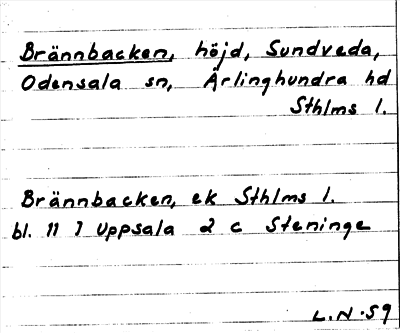 Brännbacken, höjd, Sundveda,
Odensala sn, Ärlinghundra hd
Sthlms l.
Brännbacken, ek Sthlms l.
bl. 11 I Uppsala 2 c Steninge
L.N.59